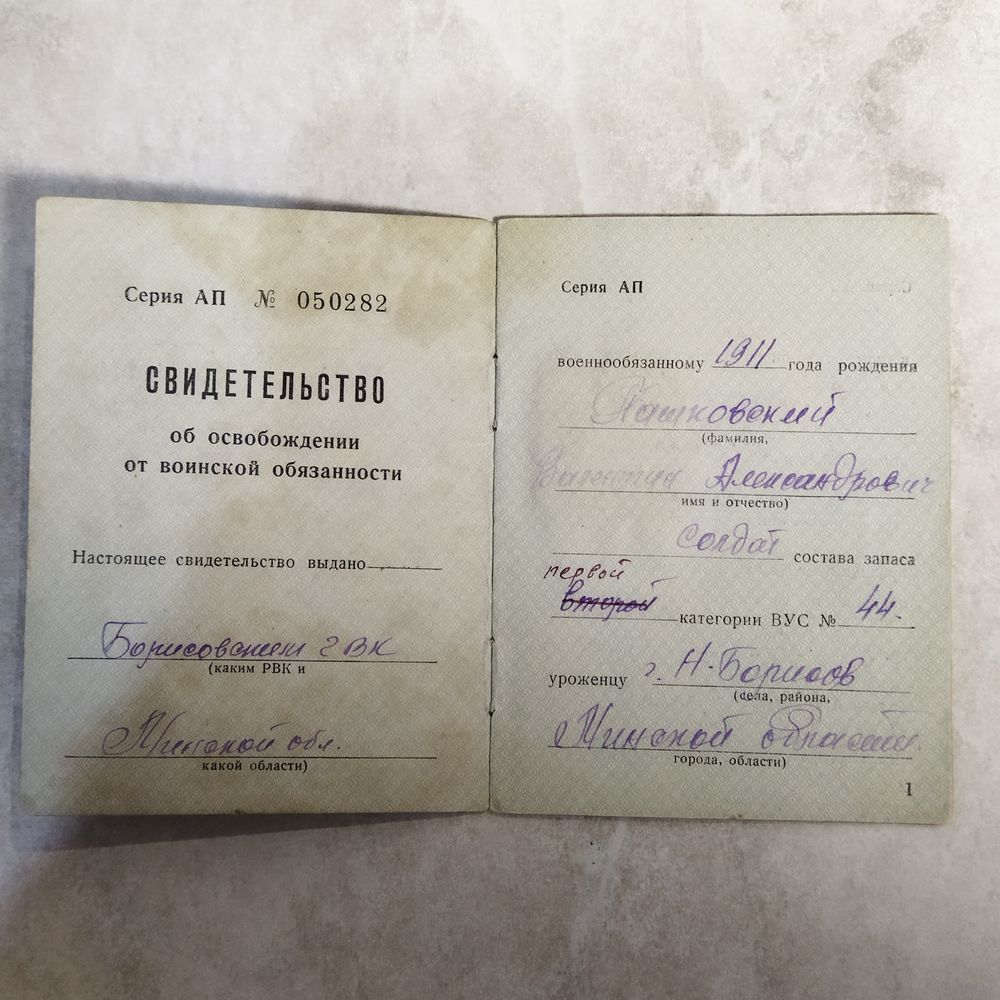 Серия АП № 050282
СВИДЕТЕЛЬСТВО
об освобождении
от воинской обязанности
Настоящее свидетельство выдано
Борисовским ГВК
(каким РВК и
Минской обл.
какой области)
Серия АП
военнообязанному 1911 года рождения
Пашковский
(фамилия,
Валентин Александрович
имя и отчество)
солдат состава запаса
первой
второй категории ВУС № 44.
уроженцу г. Н-Борисов
(села, района,
Минской области.
города, области)
1